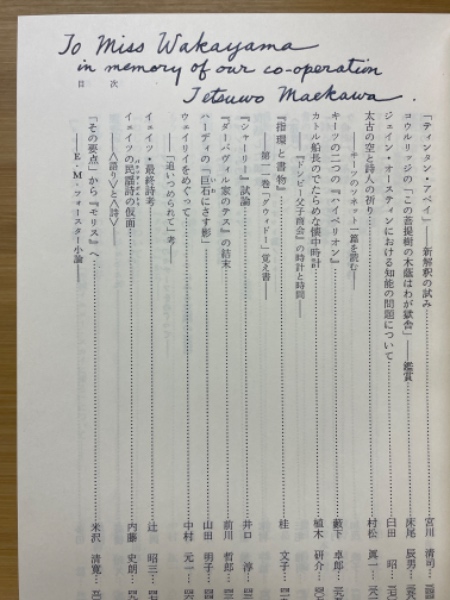 To Miss Wakayama
in memory of our co-operation
Tetsuwo Maekawa.
目 次
「ティンタン・アベイ」 新解釈の試み 宮川 清司
コウルリッジの「この菩提樹の木蔭はわが獄舎」——鑑賞 床尾 辰男
ジェイン・オースティンにおける知能の問題について 臼田 昭
太古の空と詩人の祈り 村松 眞一
——キーツのソネット一篇を読む——
キーツの二つの『ハイペリオン』 藪下 卓郎
カトル船長のでたらめな懐中時計 植木 研介
——『ドンビー父子商会』の時計と時間——
『指環と書物』 桂 文子
——第一一巻「グウィドー」覚え書——
『シャーリー』試論 井口 淳
『ダーバヴィル家のテス』の結末 前川 哲郎
ハーディの「巨石にさす影」 山田 明子
ウェイリイをめぐって 中村 元一
——「追いつめられて」考——
イェイツ・最終詩考 辻 昭三
イェイツの民謡詩の仮面 内藤 史朗
——〈語り〉と〈詩〉——
「その要点」から『モリス』へ 米沢 清寛
——E・M・フォースター小論——